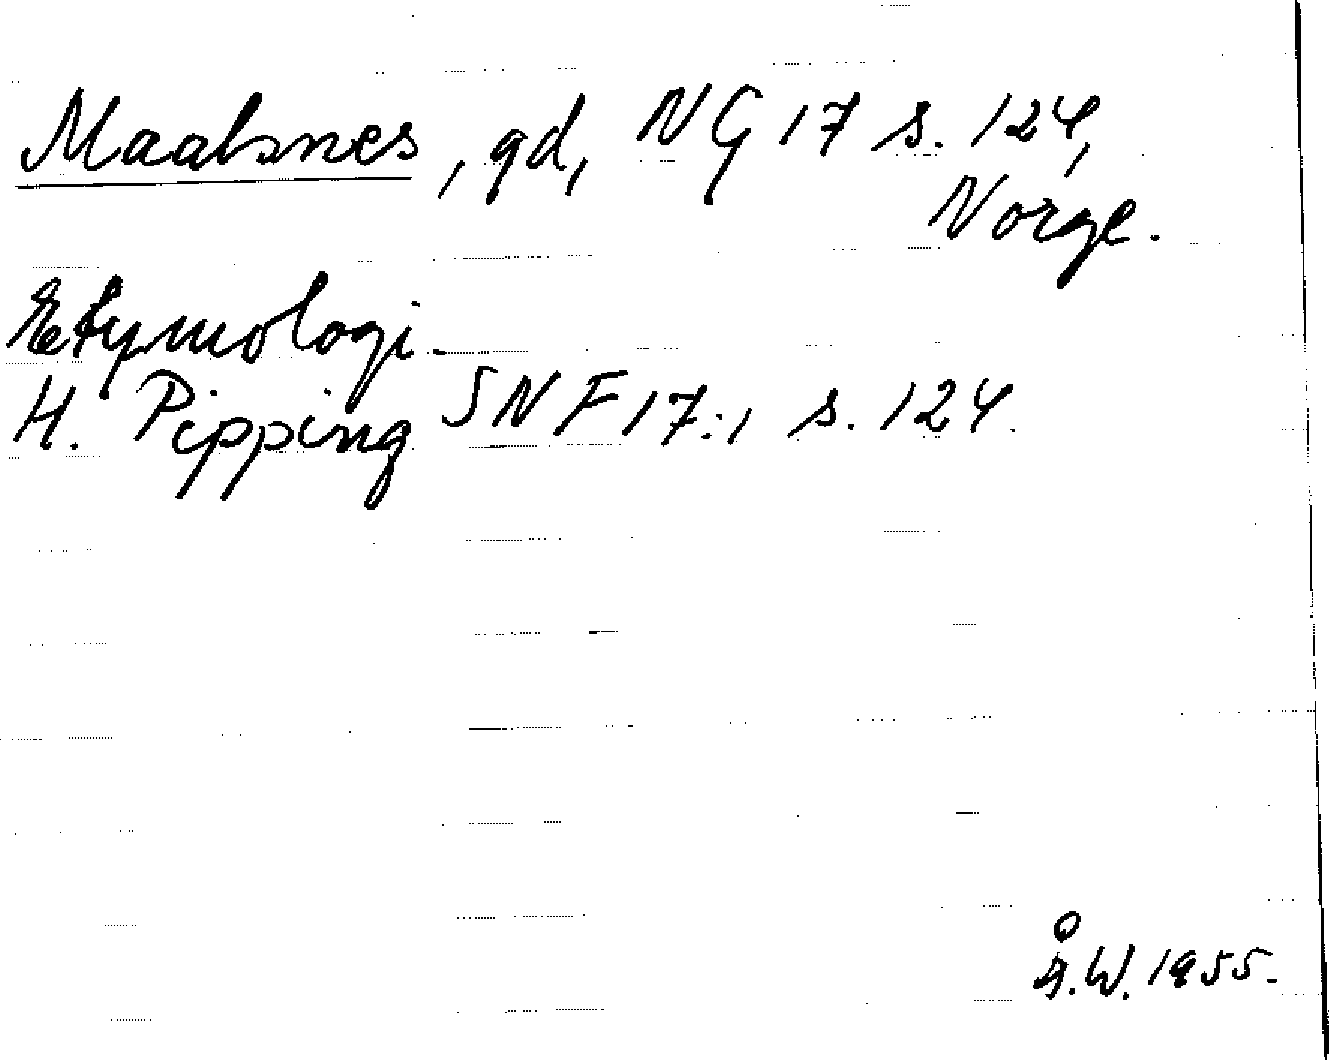 Maalsnes, gd, NG 17 s. 124,
Norge.
Etymologi.
H. Pipping SNF 17:1 s. 124.
Å.W. 1955.